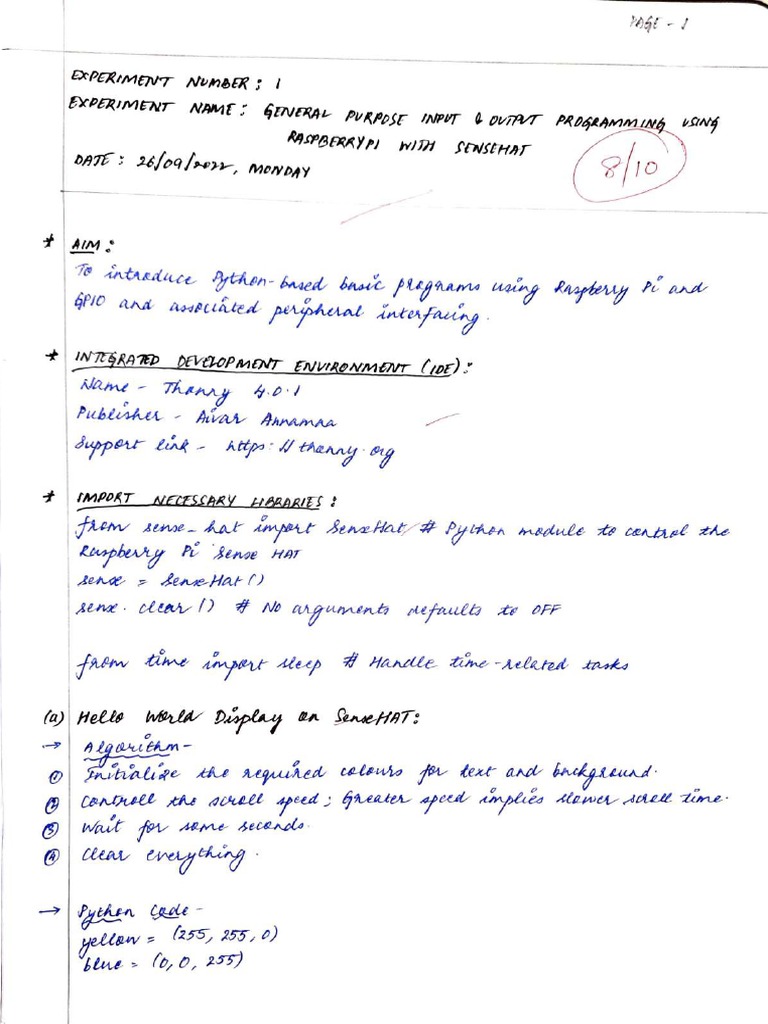 PAGE - 1
EXPERIMENT NUMBER : 1
EXPERIMENT NAME : GENERAL PURPOSE INPUT & OUTPUT PROGRAMMING USING
RASPBERRYPI WITH SENSEHAT
DATE : 26/09/2022, MONDAY
8/10
* AIM :
To introduce Python-based basic programs using Raspberry Pi and
GPIO and associated peripheral interfacing.
* INTEGRATED DEVELOPMENT ENVIRONMENT (IDE) :
Name - Thonny 4.0.1
Publisher - Aivar Annamaa
Support link - https://thonny.org
* IMPORT NECESSARY LIBRARIES :
from sense_hat import SenseHat # Python module to control the
Raspberry Pi Sense HAT
sense = SenseHat()
sense.clear() # No arguments defaults to OFF
from time import sleep # Handle time-related tasks
(a) Hello World Display on SenseHAT:
→ Algorithm -
① Initialize the required colours for text and background.
② Controll the scroll speed; Greater speed implies slower scroll time.
③ Wait for some seconds.
④ Clear everything.
→ Python Code -
yellow = (255, 255, 0)
blue = (0, 0, 255)